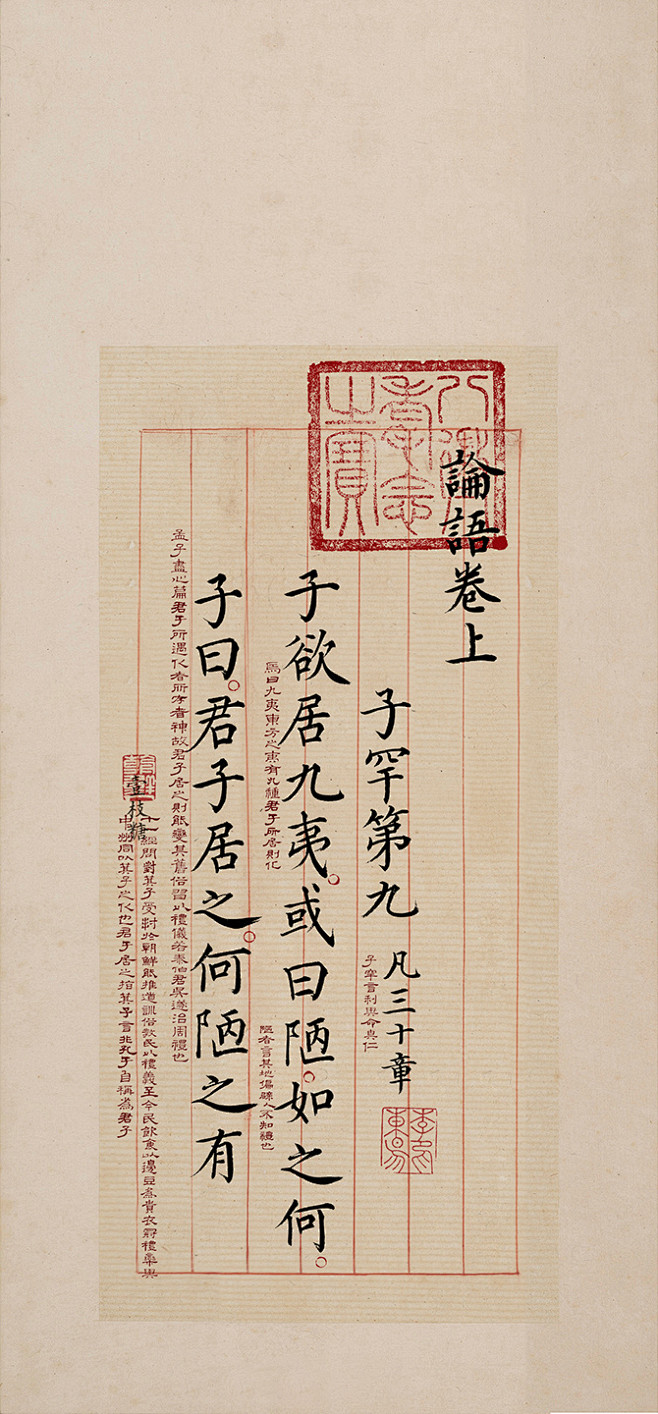 八徵
耄念
之寶
論語卷上
子罕第九 凡三十章
子罕言利與命與仁
子欲居九夷。或曰陋。如之何。
馬曰九夷東方之夷有九種君子所居則化
陋者言其地僻
人不知禮也
子曰。君子居之。何陋之有
孟子盡心篇君子所過化者所存者神故君子居之則能變其舊俗習以禮儀若泰伯君吳遂治周禮也
十一經問對箕子受封於朝鮮能推道訓俗教民以禮義至今民飲食以籩豆為貴衣冠禮樂與
中州同以箕子之化也君子居之指箕子言非孔子自稱為君子
壹枝糖